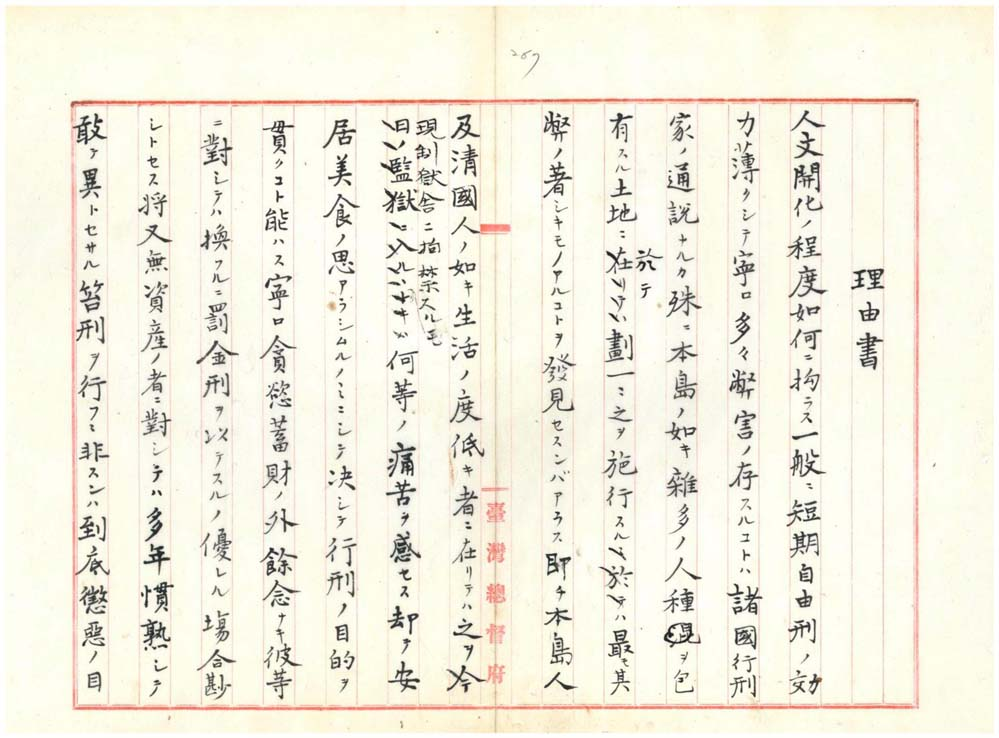 257
理由書
人文開化ノ程度如何ニ拘ラス一般ニ短期自由刑ノ効
力薄クシテ寧ロ多々弊害ノ存スルコトハ諸國行刑
家ノ通説ナルカ殊ニ本島ノ如キ雜多ノ人種ヲ包
有スル土地ニ在リテハ劃一ニ之ヲ施行スルニ於テハ最モ其
於テ
弊ノ著シキモノアルコトヲ發見セスンバアラス即チ本島人
及清國人ノ如キ生活ノ度低キ者ニ在リテハ之ヲ今
現制獄舎ニ拘禁スルモ
日ノ監獄ニ入ルヽ何等ノ痛苦ヲ感セス却テ安
居美食ノ思アラシムルノミニシテ決シテ行刑ノ目的ヲ
貫クコト能ハス寧ロ貪慾蓄財ノ外餘念ナキ彼等
ニ對シテハ換フルニ罰金刑ヲ以テスルノ優レル場合尠
シトセス将又無資産ノ者ニ對シテハ多年慣熟シテ
敢テ異トセサル笞刑ヲ行フニ非スンハ到底懲惡ノ目
臺灣總督府